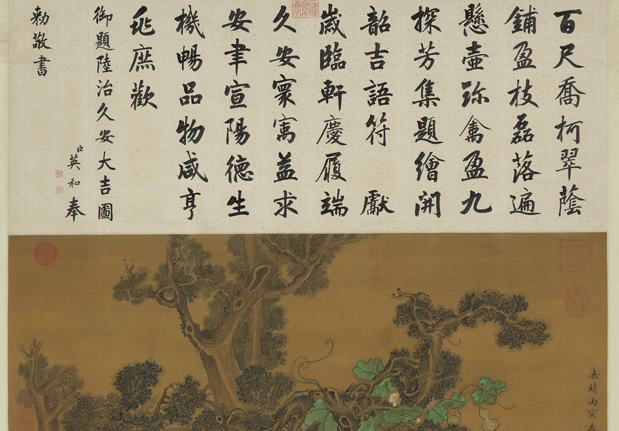 百尺喬柯翠蔭
鋪盈枝磊落遍
懸壺珎禽盈九
探芳集題繪開
韶吉語符 獻
嵗臨軒慶履端
久安寰寓益求
安聿宣陽德生
機暢品物咸亨
兆庶歡
御題陸治久安大吉圖
臣英和奉
勑敬書
嘉靖丙寅